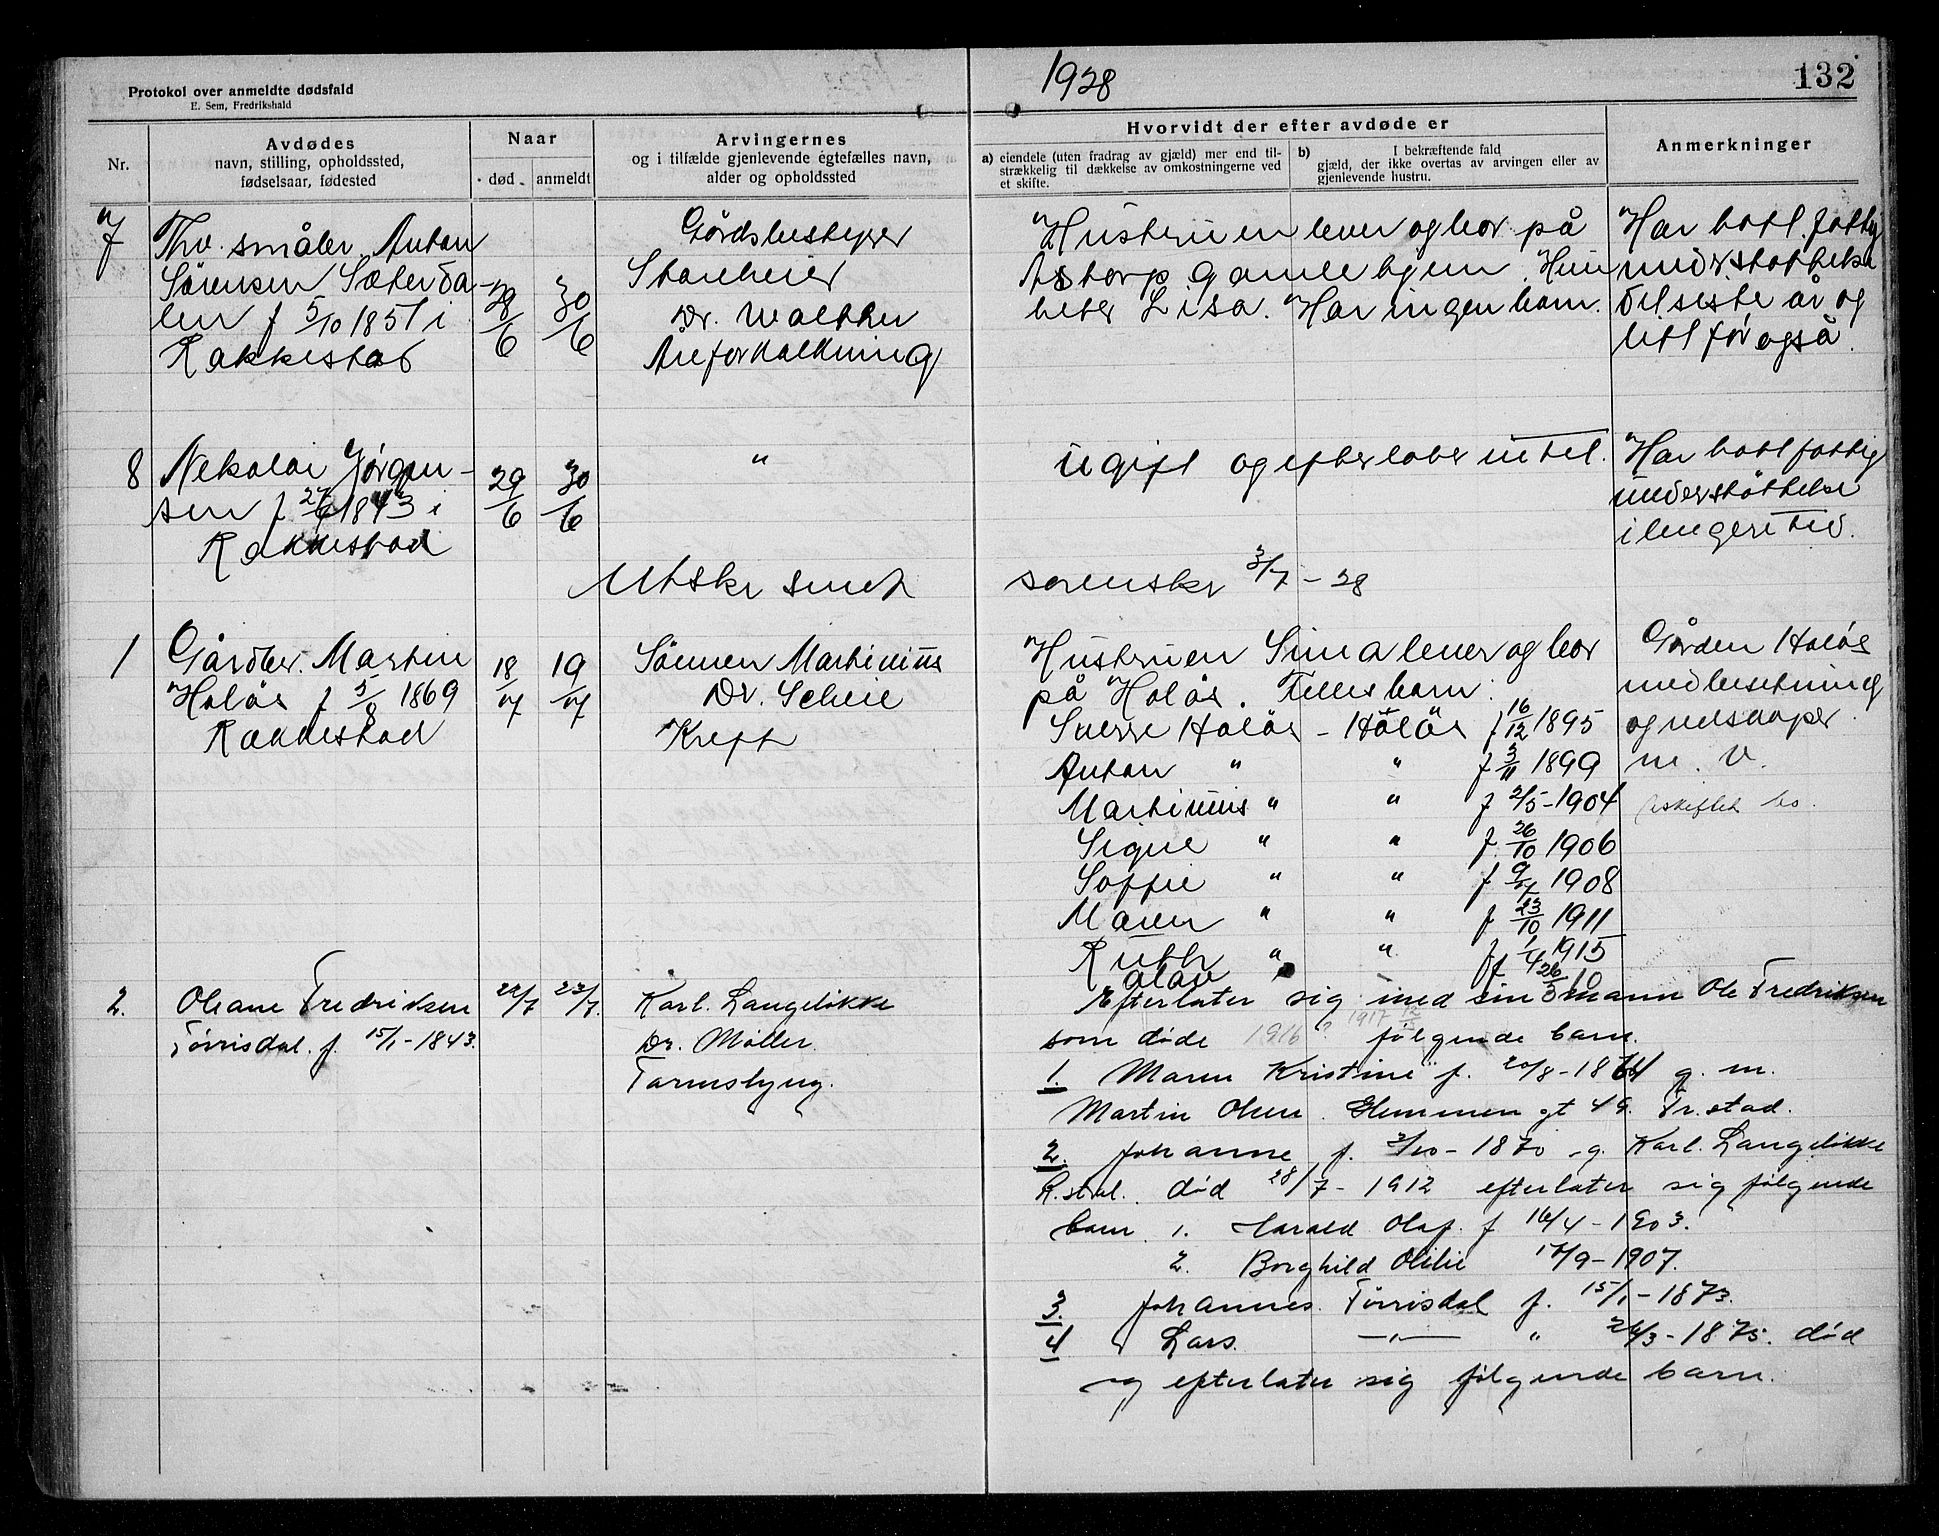 1928
132
Protokol over anmeldte dødsfald
E. Sem, Fredrikshald
Nr.
Avdødes
navn, stilling, opholdssted,
fødselsaar, fødested
Naar
død
anmeldt
Arvingernes
og i tilfælde gjenlevende egtefælles navn,
alder og opholdssted
Hvorvidt der efter avdøde er
a) eiendele (uten fradrag av gjæld) mer end til-
strækkelig til dækkelse av omkostningerne ved
et skifte.
b) I bekræftende fald
gjæld, der ikke overtas av arvingen eller av
gjenlevende hustru.
Anmerkninger
7
Fhv. småbr. Anton
Sørensen Sæterda-
len f 5/10 1851 i
Rakkestad
28/6
30/6
Gårdsbestyrer
Stanheier
Dr. Walther
Areforkalkning
Hustruen lever og bor på
Astorp gamlehjem. Hun
heter Lisa. Har ingen barn.
Har hatt fattig
understøttelse
det siste år og
litt før også.
8
Nekolai Jørgen-
sen f 27/6 1843 i
Rakkestad
29/6
30/6
"
Ugift og efterlater intet.
Har hatt fattig
understøttelse
i lengere tid.
Utskr sendt sorenskr 3/7 - 28
1
Gårdbr. Martin
Holøs f 5/8 1869
Rakkestad
18/7
19/7
Sønnen Martinius
Dr. Scheie
Kreft
Hustruen Sina lever og bor
på Holøs. Felles barn:
Sverre Holøs - Holøs f 16/12 1895
Anton " " f 3/11 1899
Martinius " " f 2/5-1904
Signe " " f. 26/10 1906
Soffie " " f 9/7 1908
Maren " " f 23/10 1911
Ruth " " f 1/4 1915
Olav f 26/5 10
Gården Holøs
med besetning
og redskaper
m. v.
Uskiftet bo.
2.
Oleane Fredriksen
Tørrisdal. f. 15/1-1843.
22/7
23/7.
Karl. Langeløkke
Dr. Møller.
Tarmslyng.
Efterlater sig med sin mann Ole Fredriksen
som døde 1916? 1917 12/ følgende barn.
1. Maren Kristine f. 20/8-1864 g. m.
Martin Olsen. Glemmen gt 49. Fr.stad.
2. Johanne f. 2/10-1870 g. Karl. Langeløkke
R.stad. død 28/7-1912 efterlater sig følgende
barn. 1. Harald Olaf. f 16/4-1903.
2. Borghild Otilie 17/9-1907.
3. Johannes. Tørrisdal f. 15/1-1873.
4 Lars. —"— " 26/3-1875. død
og efterlater sig følgende barn.